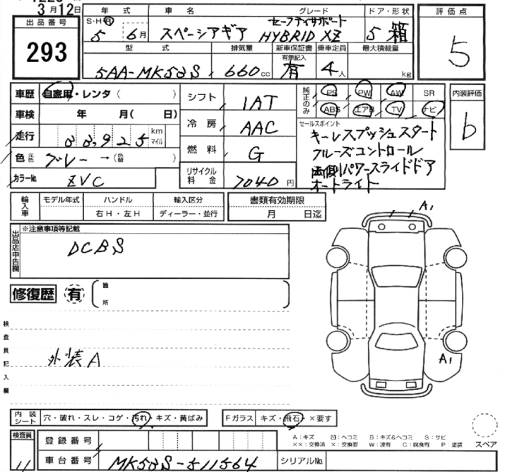 3月12日
出品番号
293
年式 車名 グレード ドア・形状
S-H・R 5年 6月 スペーシアギア セーフティサポート HYBRID XZ 5 箱
型式 排気量 新車保証書 乗車定員 最大積載量
5AA-MK53S 660cc 有限記入 有 4人 kg
評価点
5
車歴 自家用・レンタ( )
車検 年 月( 日)
走行 km マイル
色 グレー→( )
カラーNo. ZVC
シフト IAT
冷房 AAC
燃料 G
リサイクル料金 7040円
純正のみ PS PW AW SR
ABS エアB TV ナビ
内装評価
b
セールスポイント
キーレスプッシュスタート
クルーズコントロール
両側パワースライドドア
オートライト
輸入車 モデル年式 ハンドル 輸入区分
右H・左H ディーラー・並行
書類有効期限
月 日迄
出品店申告欄
※注意事項等記載
DCBS
修復歴 有 箇所
検査員記入欄
外装A
A1
A1
内装シート 穴・破れ・スレ・コゲ・汚れ・キズ・黄ばみ
Fガラス キズ・飛石・×要す
スペア
検査員
登録番号
車台番号 MK53S-511564
シリアルNo.